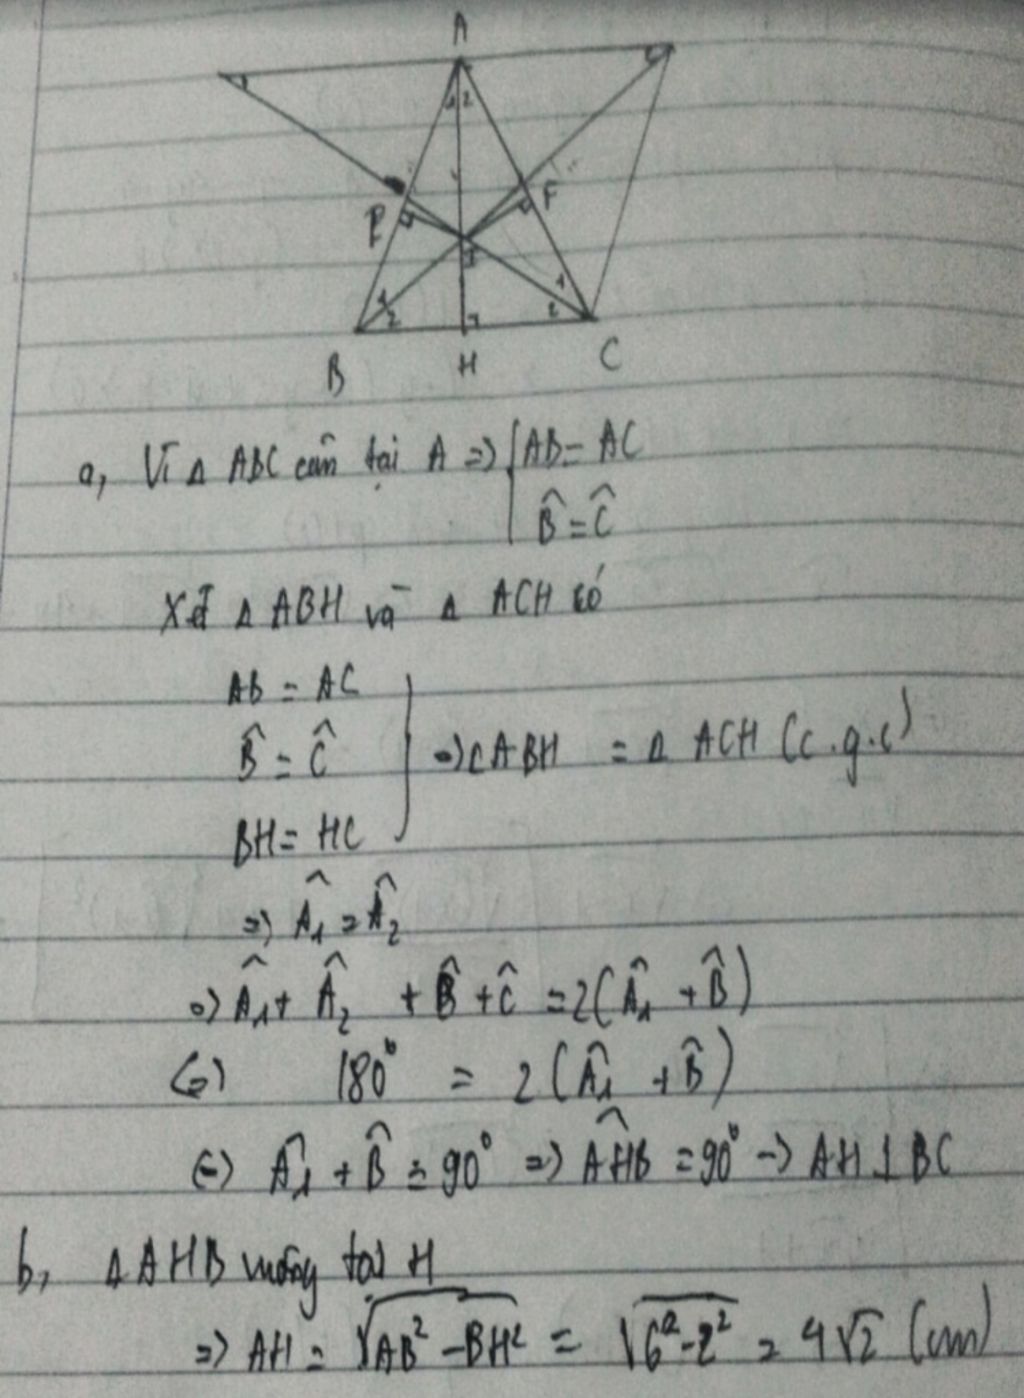 A
1 2
E
F
I
1
2
1
2
B
H
C
a, Vì Δ ABC cân tại A => { AB = AC
B̂ = Ĉ
Xét Δ ABH và Δ ACH có
AB = AC
B̂ = Ĉ
BH = HC
} => Δ ABH = Δ ACH (c.g.c)
=> Â₁ = Â₂
=> Â₁ + Â₂ + B̂ + Ĉ = 2(Â₁ + B̂)
(=) 180° = 2(Â₁ + B̂)
(=) Â₁ + B̂ = 90° => AHB̂ = 90° -> AH ⊥ BC
b, Δ AHB vuông tại H
=> AH = √(AB² - BH²) = √(6² - 2²) = 4√2 (cm)